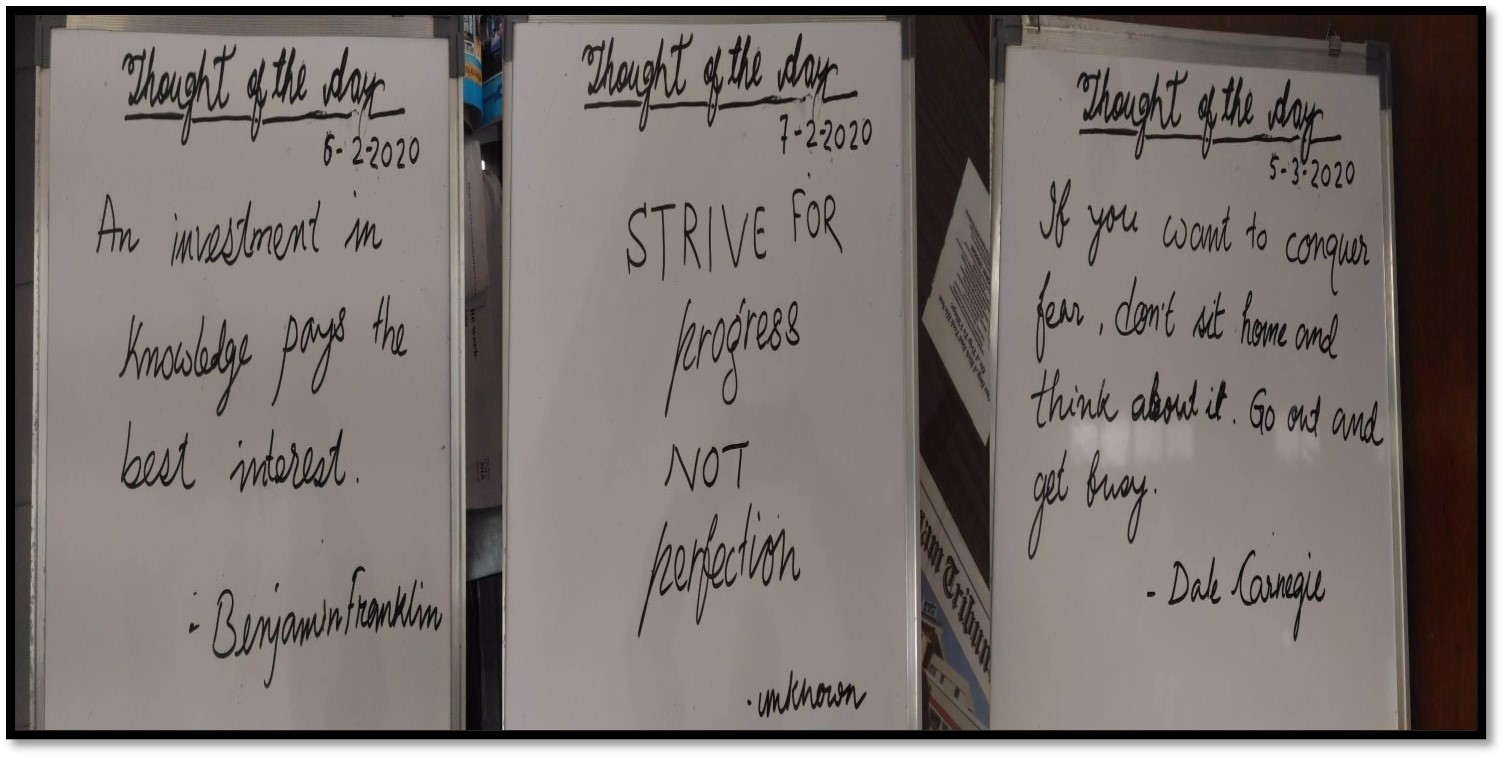 Thought of the day
6-2-2020
An investment in
Knowledge pays the
best interest.
- Benjamin Franklin
Thought of the day
7-2-2020
STRIVE FOR
progress
NOT
perfection
-unknown
Thought of the day
5-3-2020
If you want to conquer
fear, don't sit home and
think about it. Go out and
get busy.
- Dale Carnegie
am Tribun